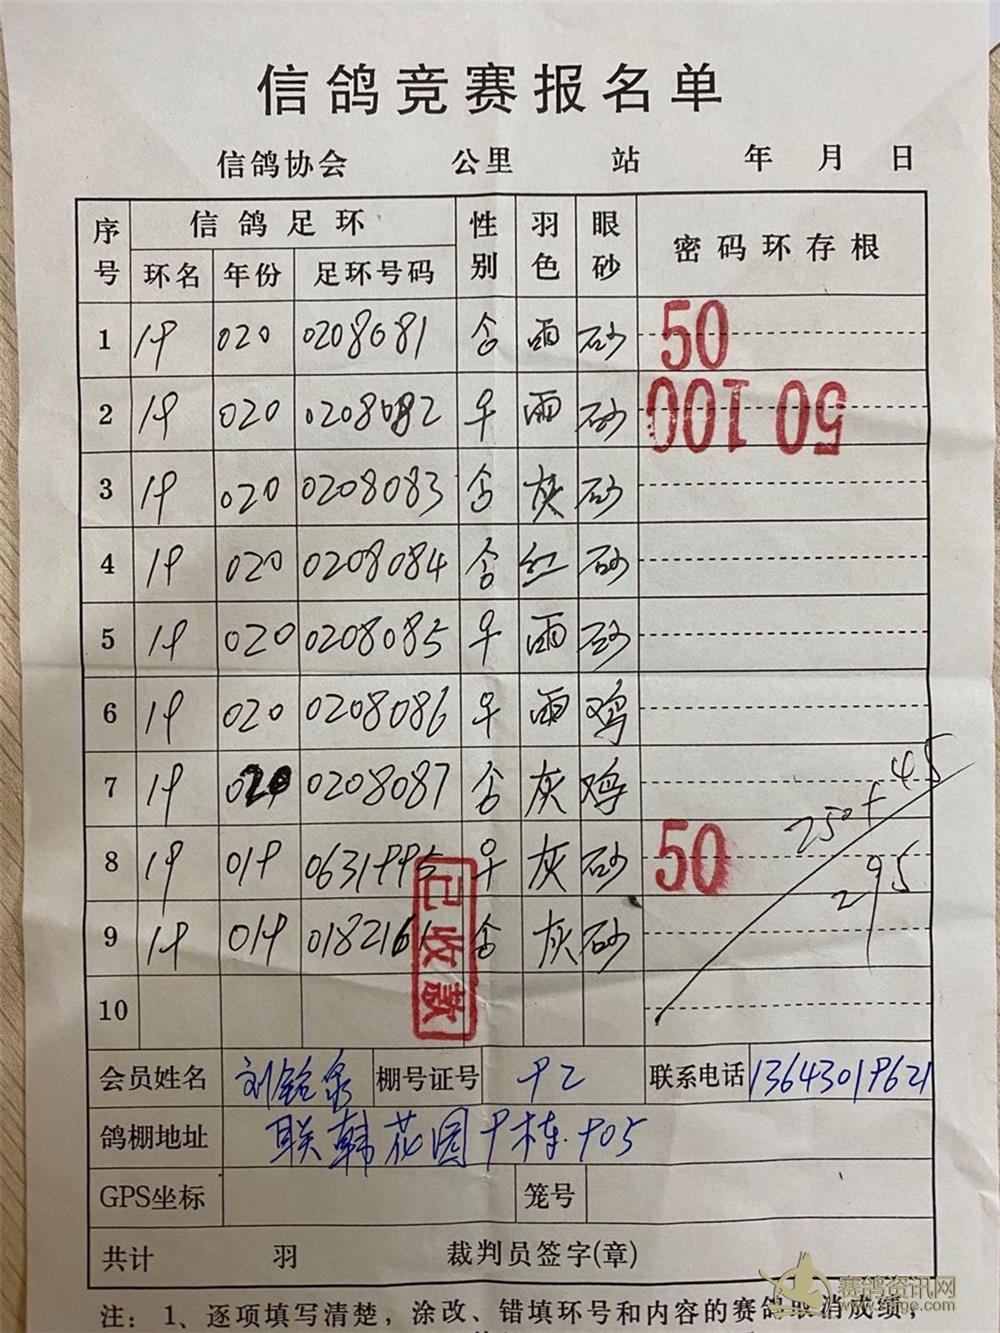 信鸽竞赛报名单
信鸽协会 公里 站 年 月 日
序号 信鸽足环 性别 羽色 眼砂 密码环存根
环名 年份 足环号码
1 19 020 0208081 合 雨 砂 50
2 19 020 0208082 早 雨 砂 50 100
3 19 020 0208083 合 灰 砂
4 19 020 0208084 合 红 砂
5 19 020 0208085 早 雨 砂
6 19 020 0208086 早 雨 鸡
7 19 020 0208087 合 灰 鸡
250+45
8 19 019 0631995 早 灰 砂 50
295
9 19 019 0182161 合 灰 砂
已收款
10
会员姓名 刘铭泉 棚号证号 92 联系电话 13643019621
鸽棚地址 联韩花园9栋.905
GPS坐标 笼号
共计 羽 裁判员签字(章)
注：1、逐项填写清楚，涂改、错填环号和内容的赛鸽取消成绩，
赛鸽资讯网